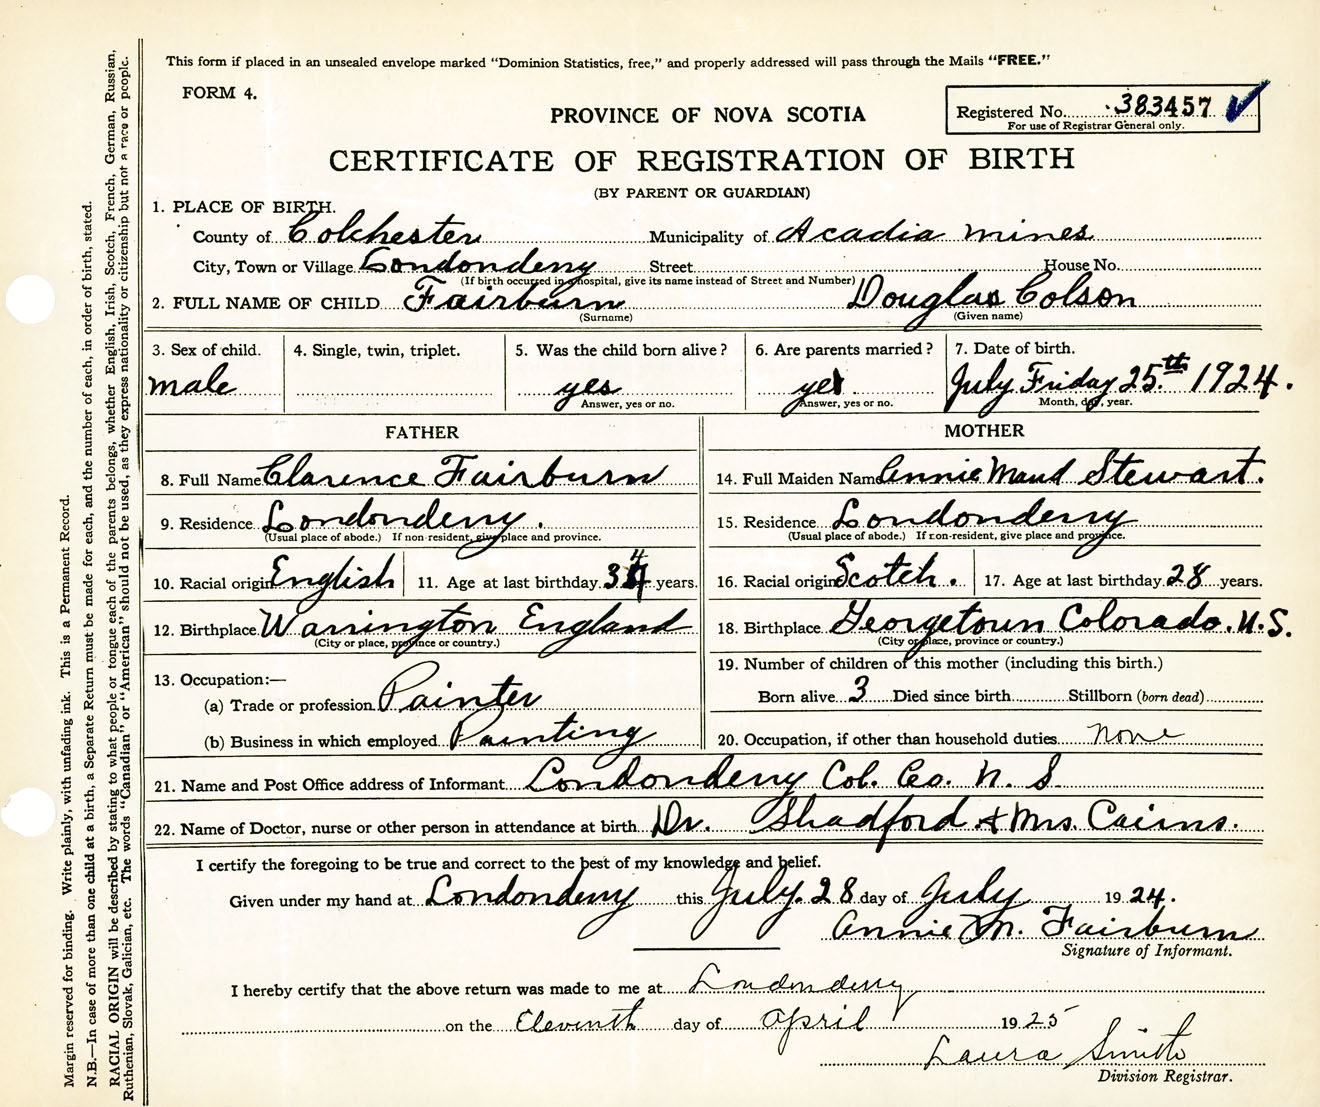 This form if placed in an unsealed envelope marked "Dominion Statistics, free," and properly addressed will pass through the Mails "FREE."
FORM 4.
PROVINCE OF NOVA SCOTIA
Registered No. 383457
For use of Registrar General only.
CERTIFICATE OF REGISTRATION OF BIRTH
(BY PARENT OR GUARDIAN)
1. PLACE OF BIRTH.
County of Colchester Municipality of Acadia Mines
City, Town or Village Londonderry Street House No.
(If birth occurred in a hospital, give its name instead of Street and Number)
2. FULL NAME OF CHILD Fairburn Douglas Colson
(Surname) (Given name)
3. Sex of child. 4. Single, twin, triplet. 5. Was the child born alive? 6. Are parents married? 7. Date of birth.
male yes yes July Friday 25th 1924.
Answer, yes or no. Answer, yes or no. Month, day, year.
FATHER
8. Full Name Clarence Fairburn
9. Residence Londonderry.
(Usual place of abode.) If non-resident, give place and province.
10. Racial origin English 11. Age at last birthday 34 years.
12. Birthplace Warrington England
(City or place, province or country.)
13. Occupation:—
(a) Trade or profession Painter
(b) Business in which employed Painting
MOTHER
14. Full Maiden Name Annie Maud Stewart.
15. Residence Londonderry
(Usual place of abode.) If non-resident, give place and province.
16. Racial origin Scotch. 17. Age at last birthday 28 years.
18. Birthplace Georgetown Colorado. U.S.
(City or place, province or country.)
19. Number of children of this mother (including this birth.)
Born alive 3 Died since birth Stillborn (born dead)
20. Occupation, if other than household duties none
21. Name and Post Office address of Informant Londonderry Col. Co. N. S.
22. Name of Doctor, nurse or other person in attendance at birth Dr. Shadford & Mrs. Cairns.
I certify the foregoing to be true and correct to the best of my knowledge and belief.
Given under my hand at Londonderry this July. 28 day of July 1924.
Annie M. Fairburn
Signature of Informant.
I hereby certify that the above return was made to me at Londonderry
on the Eleventh day of April 1925
Laura Smith
Division Registrar.
Margin reserved for binding. Write plainly, with unfading ink. This is a Permanent Record.
N.B.—In case of more than one child at a birth, a Separate Return must be made for each, and the number of each, in order of birth, stated.
RACIAL ORIGIN will be described by stating to what people or tongue each of the parents belongs, whether English, Irish, Scotch, French, German, Russian,
Ruthenian, Slovak, Galician, etc. The words "Canadian" or "American" should not be used, as they express nationality or citizenship but not a race or people.